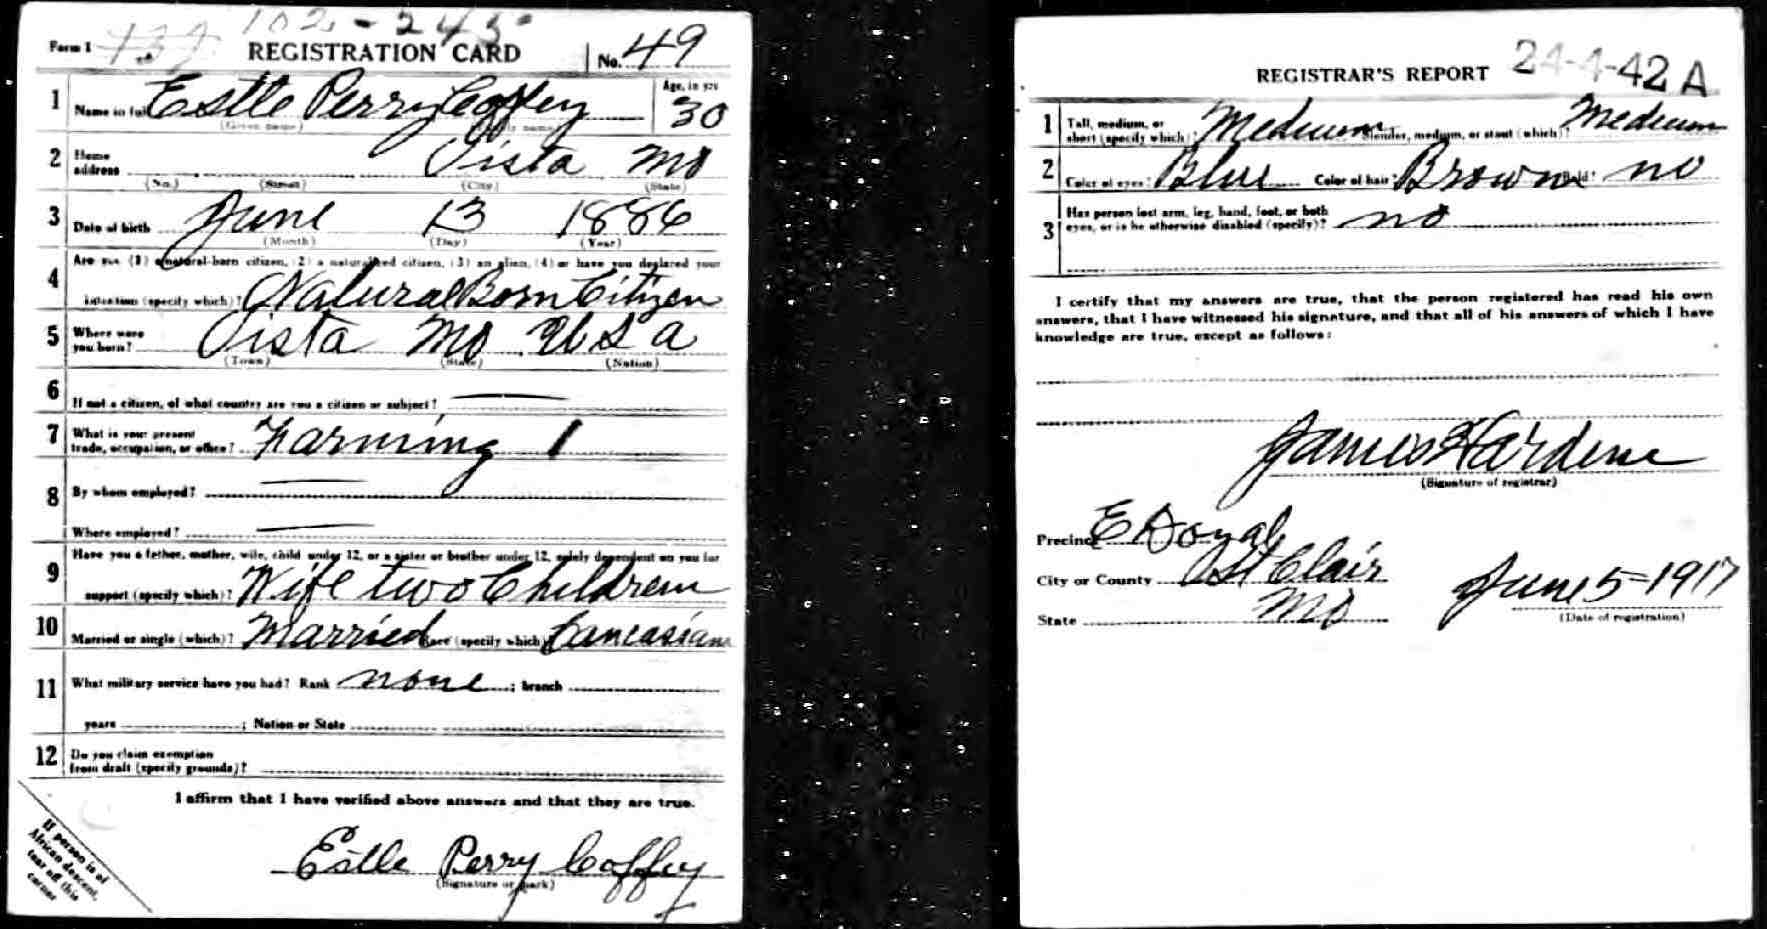 102-245
Form 1 REGISTRATION CARD No. 49
1 Name in full Estle Perry Coffey Age, in yrs 30
(Given name) (Family name)
2 Home address Vista Mo
(No.) (Street) (City) (State)
3 Date of birth June 13 1886
(Month) (Day) (Year)
4 Are you (1) a natural-born citizen, (2) a naturalized citizen, (3) an alien, (4) or have you declared your
intention (specify which)? Natural Born Citizen
5 Where were you born? Vista Mo U S A
(Town) (State) (Nation)
6 If not a citizen, of what country are you a citizen or subject?
7 What is your present trade, occupation, or office? Farming 1
8 By whom employed?
Where employed?
9 Have you a father, mother, wife, child under 12, or a sister or brother under 12, solely dependent on you for
support (specify which)? Wife two Children
10 Married or single (which)? Married Race (specify which)? Caucasian
11 What military service have you had? Rank none ; branch
years ; Nation or State
12 Do you claim exemption from draft (specify grounds)?
I affirm that I have verified above answers and that they are true.
Estle Perry Coffey
(Signature or mark)
If person is of
African descent,
tear off this
corner
REGISTRAR'S REPORT 24-4-42 A
1 Tall, medium, or short (specify which)? Medium Slender, medium, or stout (which)? Medium
2 Color of eyes? Blue Color of hair? Brown Bald? no
3 Has person lost arm, leg, hand, foot, or both
eyes, or is he otherwise disabled (specify)? no
I certify that my answers are true, that the person registered has read his own
answers, that I have witnessed his signature, and that all of his answers of which I have
knowledge are true, except as follows:
James Hardin
(Signature of registrar)
Precinct E Doyal
City or County St Clair
State Mo June 5-1917
(Date of registration)